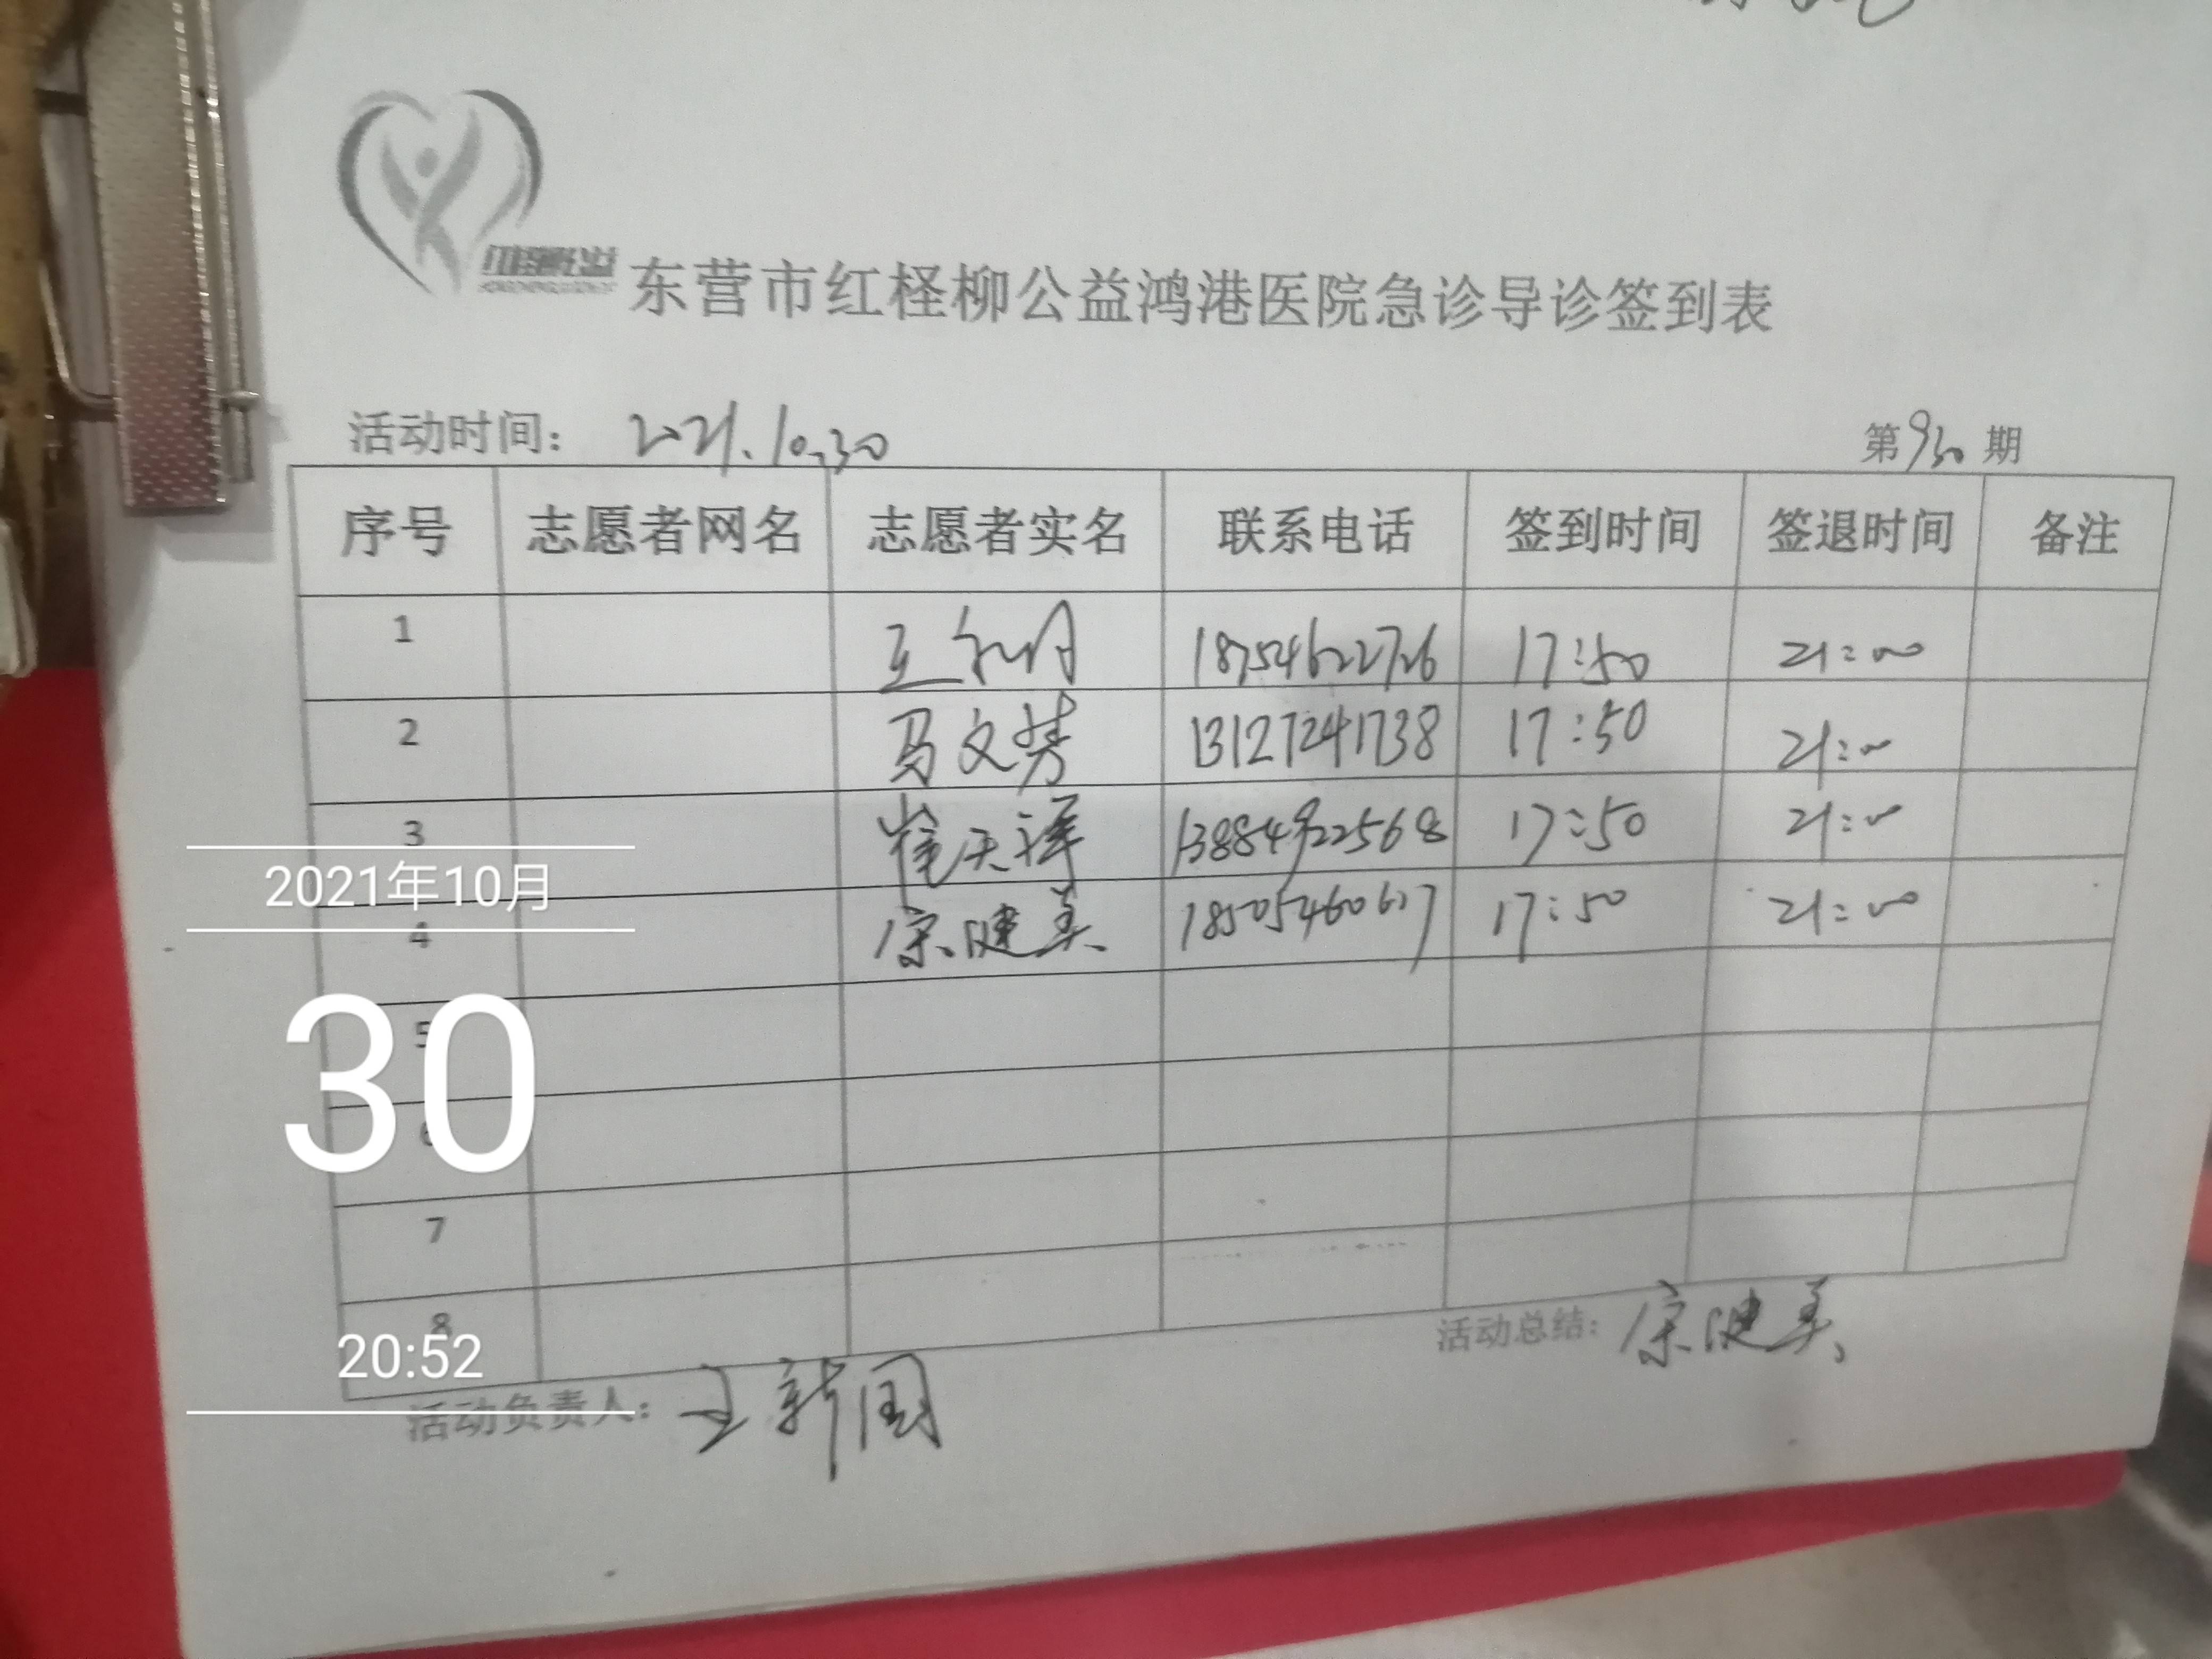 东营市红柽柳公益鸿港医院急诊导诊签到表
活动时间： 2021.10.30 第930期
序号 志愿者网名 志愿者实名 联系电话 签到时间 签退时间 备注
1 18754622726 17:50 21:00
2 马文芳 13127241738 17:50 21:00
3 崔天祥 13884922568 17:50 21:00
4 宗健美 18505460617 17:50 21:00
5
6
7
8
活动总结: 宗健美
活动负责人: 王新国
2021年10月
30
20:52